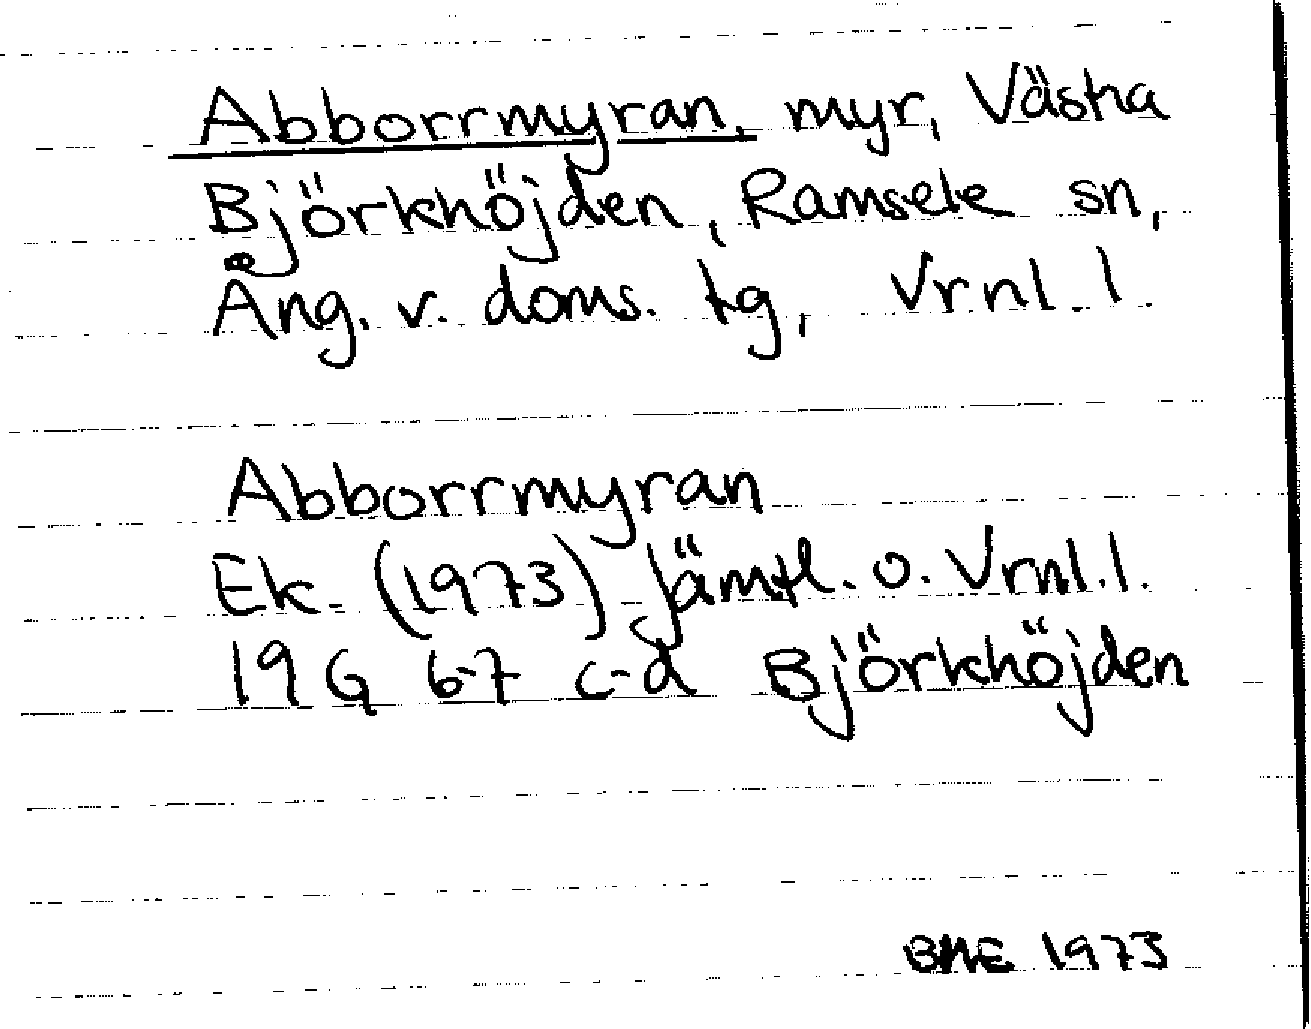 Abborrmyran, myr, Västra
Björkhöjden, Ramsele sn,
Ång. v. doms. tg, Vrnl. l.
Abborrmyran
Ek. (1973) Jämtl. o. Vrnl. l.
19 G 6-7 c-d Björkhöjden
1973